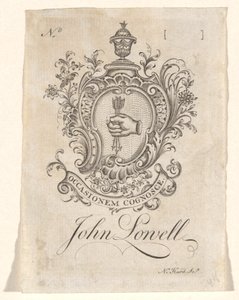 N.º [ ]
OCCASIONEM COGNOSCE
John Lowell
N. Hurd Sc.